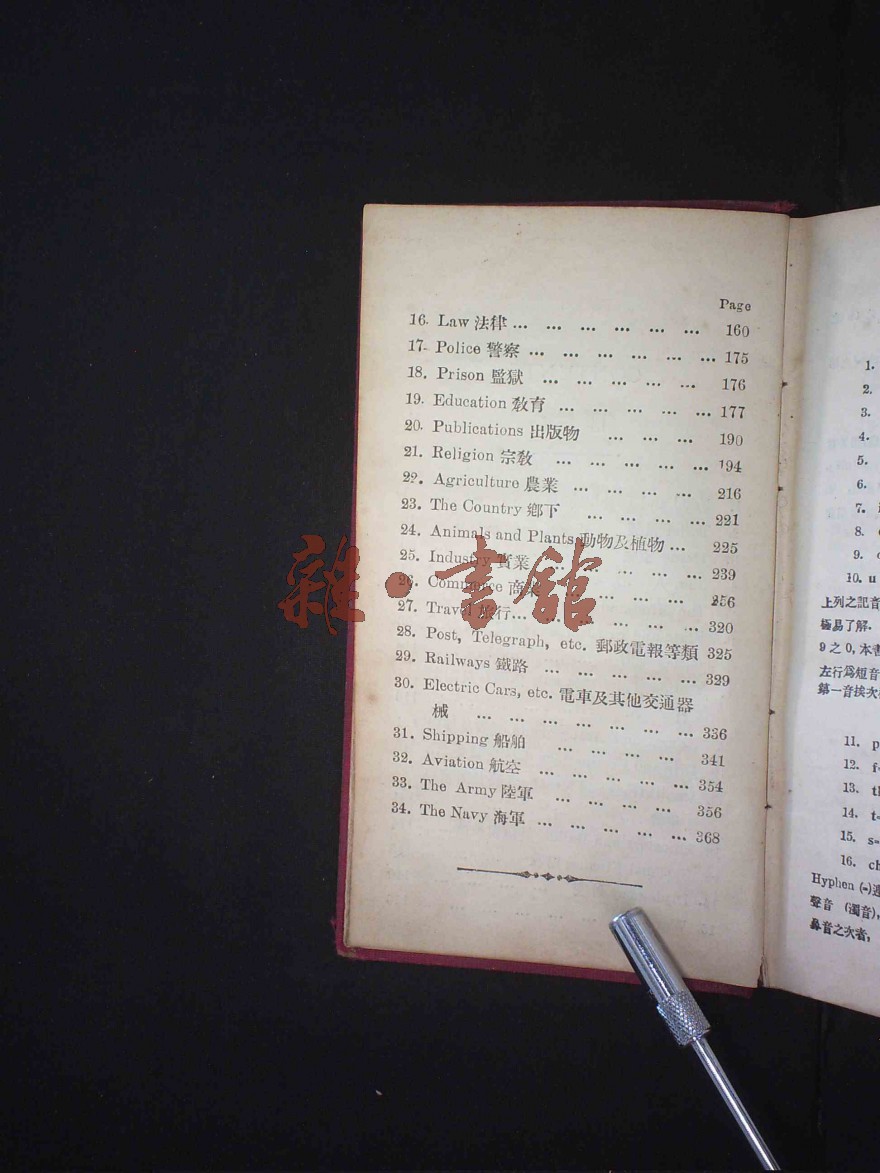 Page
16. Law 法律 ... ... ... ... ... ... 160
17. Police 警察 ... ... ... ... ... ... 175
18. Prison 監獄 ... ... ... ... ... 176
19. Education 敎育 ... ... ... ... ... 177
20. Publications 出版物 ... ... ... 190
21. Religion 宗敎 ... ... ... ... ... 194
22. Agriculture 農業 ... ... ... ... 216
23. The Country 鄉下 ... ... ... ... 221
24. Animals and Plants 動物及植物 ... 225
25. Industry 實業 ... ... ... ... ... 239
26. Commerce 商業 ... ... ... ... 256
27. Travel 旅行 ... ... ... ... ... ... 320
28. Post, Telegraph, etc. 郵政電報等類 325
29. Railways 鐵路 ... ... ... ... ... 329
30. Electric Cars, etc. 電車及其他交通器
械 ... ... ... ... ... ... ... 336
31. Shipping 船舶 ... ... ... ... 341
32. Aviation 航空 ... ... ... ... ... 354
33. The Army 陸軍 ... ... ... ... 356
34. The Navy 海軍 ... ... ... ... ... 368
雜·書館
1.
2.
3.
4.
5.
6.
7.
8.
9.
10. u
上列之記音
極易了解.
9之0,本書
左行爲短音
第一音挨次
11. p
12. f-
13. th
14. t-
15. s-
16. ch
Hyphen (-)
聲音 (濁音),
鼻音之次者,